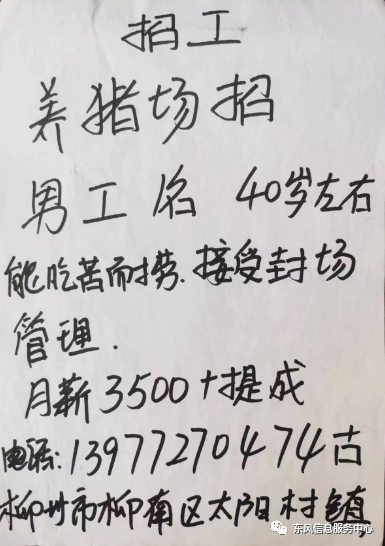 招工
养猪场招
男工名 40岁左右
能吃苦而捞、接受封场
管理.
月薪3500+提成
电话:13977270474古
柳州市柳南区太阳村镇
东风信息服务中心